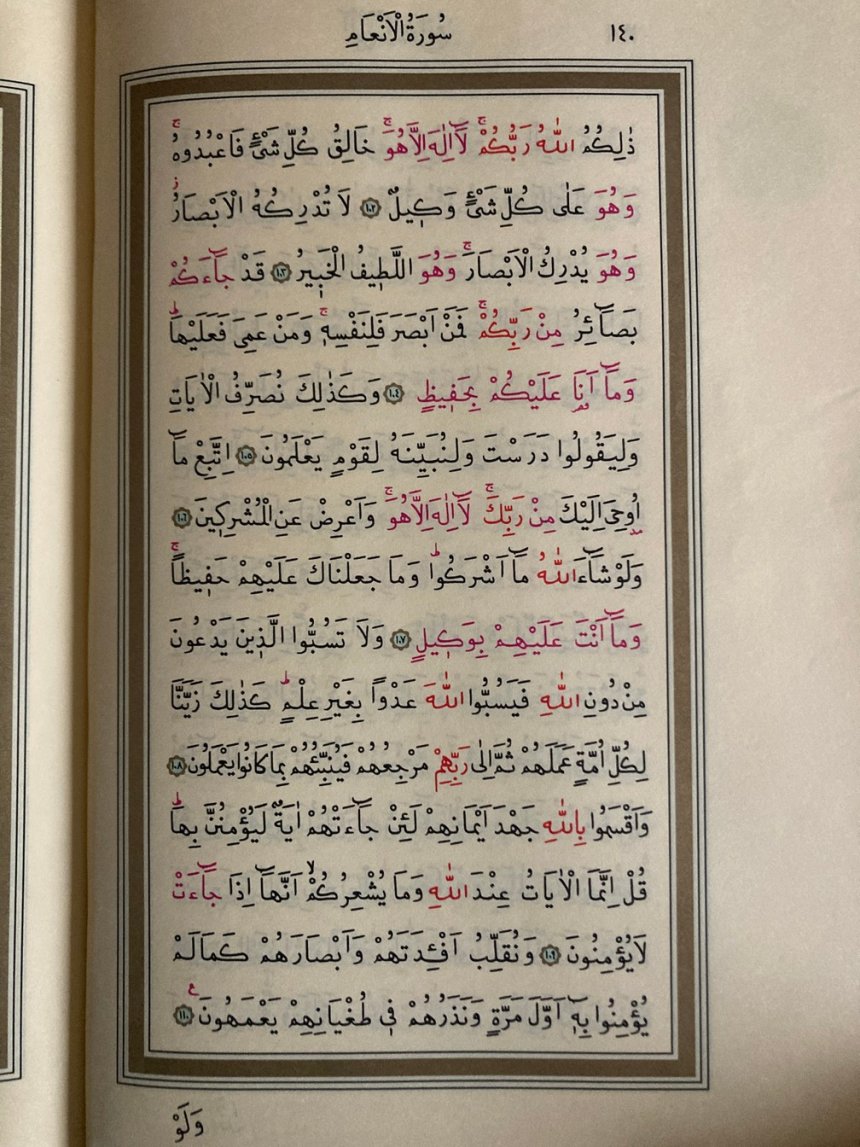 سُورَةُ الْاَنْعَامِ ١٤٠
ذٰلِكُمُ اللّٰهُ رَبُّكُمْۚ لَٓا اِلٰهَ اِلَّا هُوَۚ خَالِقُ كُلِّ شَىْءٍ فَاعْبُدُوهُۚ
وَهُوَ عَلٰى كُلِّ شَىْءٍ وَك۪يلٌ ﴿١٠٢﴾ لَا تُدْرِكُهُ الْاَبْصَارُۘ
وَهُوَ يُدْرِكُ الْاَبْصَارَۚ وَهُوَ اللَّط۪يفُ الْخَب۪يرُ ﴿١٠٣﴾ قَدْ جَٓاءَكُمْ
بَصَٓائِرُ مِنْ رَبِّكُمْۚ فَمَنْ اَبْصَرَ فَلِنَفْسِه۪ۚ وَمَنْ عَمِىَ فَعَلَيْهَاۜ
وَمَٓا اَنَا۬ عَلَيْكُمْ بِحَف۪يظٍ ﴿١٠٤﴾ وَكَذٰلِكَ نُصَرِّفُ الْاٰيَاتِ
وَلِيَقُولُوا دَرَسْتَ وَلِنُبَيِّنَهُ لِقَوْمٍ يَعْلَمُونَ ﴿١٠٥﴾ اِتَّبِعْ مَٓا
اُو۫حِىَ اِلَيْكَ مِنْ رَبِّكَۚ لَٓا اِلٰهَ اِلَّا هُوَۚ وَاَعْرِضْ عَنِ الْمُشْرِك۪ينَ ﴿١٠٦﴾
وَلَوْ شَٓاءَ اللّٰهُ مَٓا اَشْرَكُواۜ وَمَا جَعَلْنَاكَ عَلَيْهِمْ حَف۪يظًاۚ
وَمَٓا اَنْتَ عَلَيْهِمْ بِوَك۪يلٍ ﴿١٠٧﴾ وَلَا تَسُبُّوا الَّذ۪ينَ يَدْعُونَ
مِنْ دُونِ اللّٰهِ فَيَسُبُّوا اللّٰهَ عَدْوًا بِغَيْرِ عِلْمٍۜ كَذٰلِكَ زَيَّنَّا
لِكُلِّ اُمَّةٍ عَمَلَهُمْ ثُمَّ اِلٰى رَبِّهِمْ مَرْجِعُهُمْ فَيُنَبِّئُهُمْ بِمَا كَانُوا يَعْمَلُونَ ﴿١٠٨﴾
وَاَقْسَمُوا بِاللّٰهِ جَهْدَ اَيْمَانِهِمْ لَئِنْ جَٓاءَتْهُمْ اٰيَةٌ لَيُؤْمِنُنَّ بِهَاۜ
قُلْ اِنَّمَا الْاٰيَاتُ عِنْدَ اللّٰهِ وَمَا يُشْعِرُكُمْۙ اَنَّهَٓا اِذَا جَٓاءَتْ
لَا يُؤْمِنُونَ ﴿١٠٩﴾ وَنُقَلِّبُ اَفْئِدَتَهُمْ وَاَبْصَارَهُمْ كَمَا لَمْ
يُؤْمِنُوا بِه۪ٓ اَوَّلَ مَرَّةٍ وَنَذَرُهُمْ ف۪ى طُغْيَانِهِمْ يَعْمَهُونَ ﴿١١٠﴾ ع
وَلَوْ